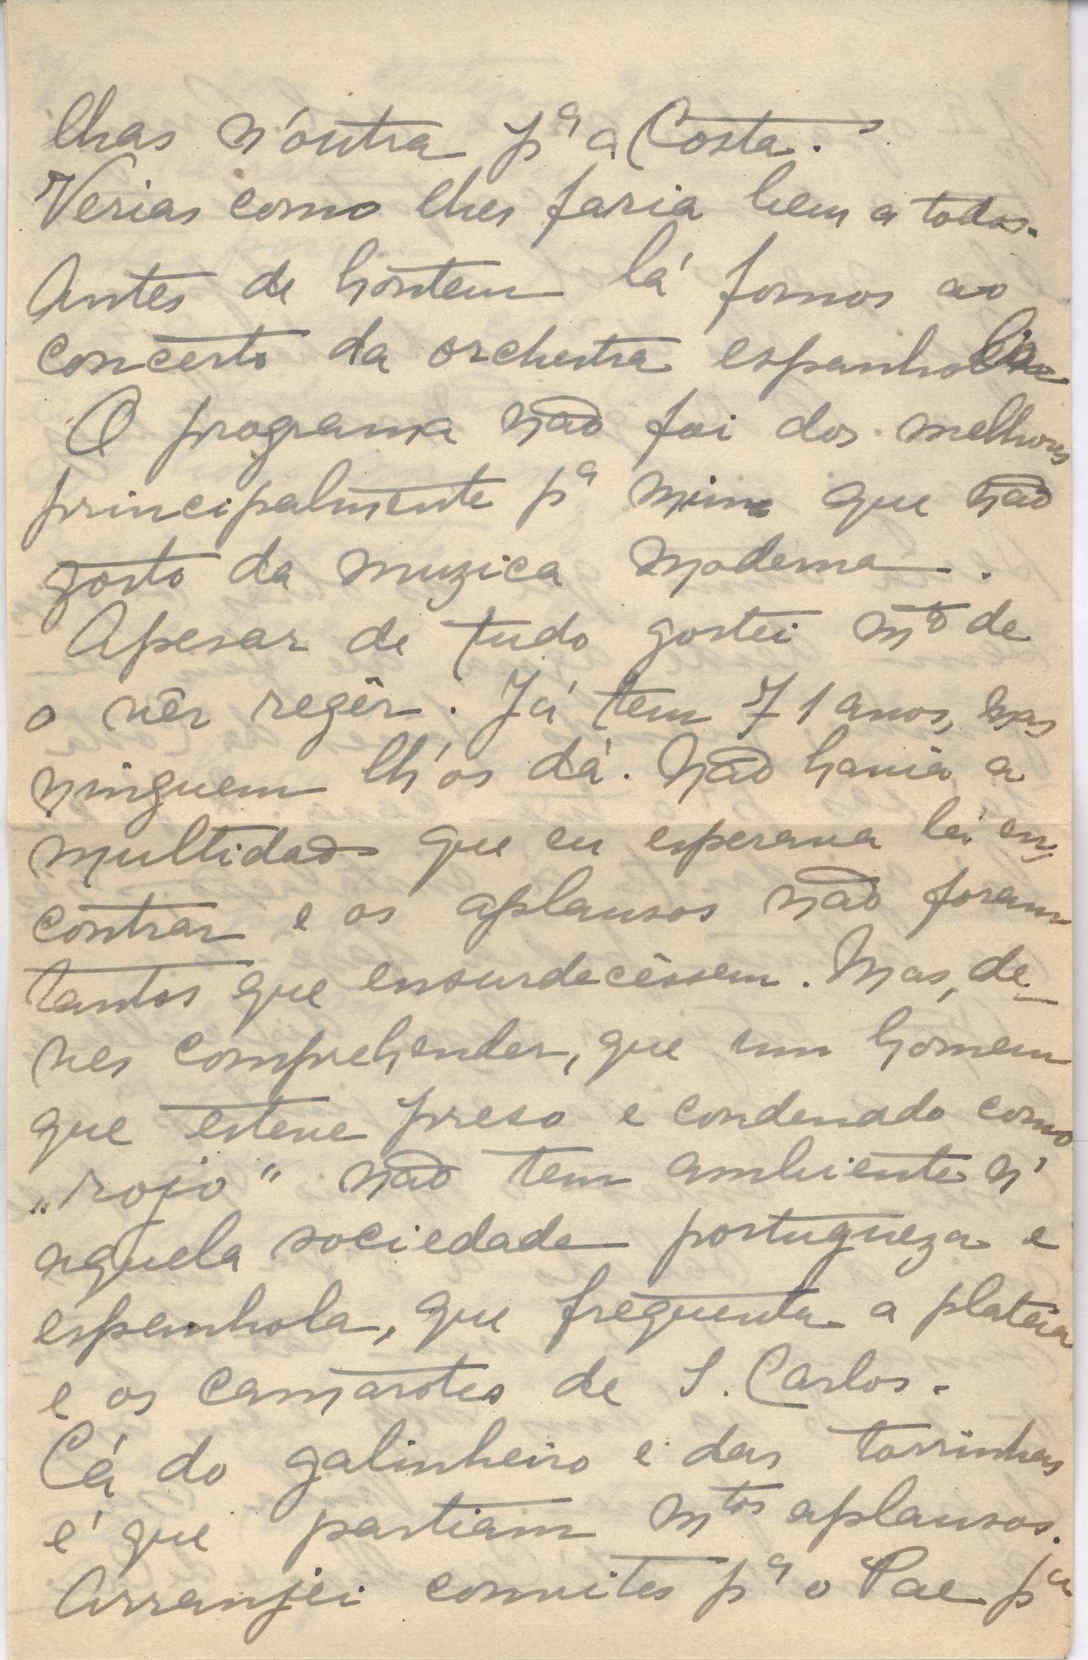 lhas n'outra pª a Costa.
Verias como lhes faria bem a todos.
Antes de hontem lá fomos ao
concerto da orchestra espanhola
O programa não foi dos melhores
principalmente pª mim que não
gosto da muzica moderna.
Apesar de tudo gostei mto de
o vêr regêr. Já tem 71 anos, mas
ninguem lh'os dá. Não havia a
multidão que eu esperava lá en-
contrar e os aplausos não foram
tantos que ensurdecêssem. Mas, de-
ves comprehender, que um homem
que esteve preso e condenado como
„rojo" não tem ambiente n'
aquela sociedade portugueza e
espanhola, que frequenta a platéia
e os camarotes de S. Carlos.
Cá do galinheiro e das torrinhas
é que partiam mtos aplausos.
Arranjei convites pª o Pae pª